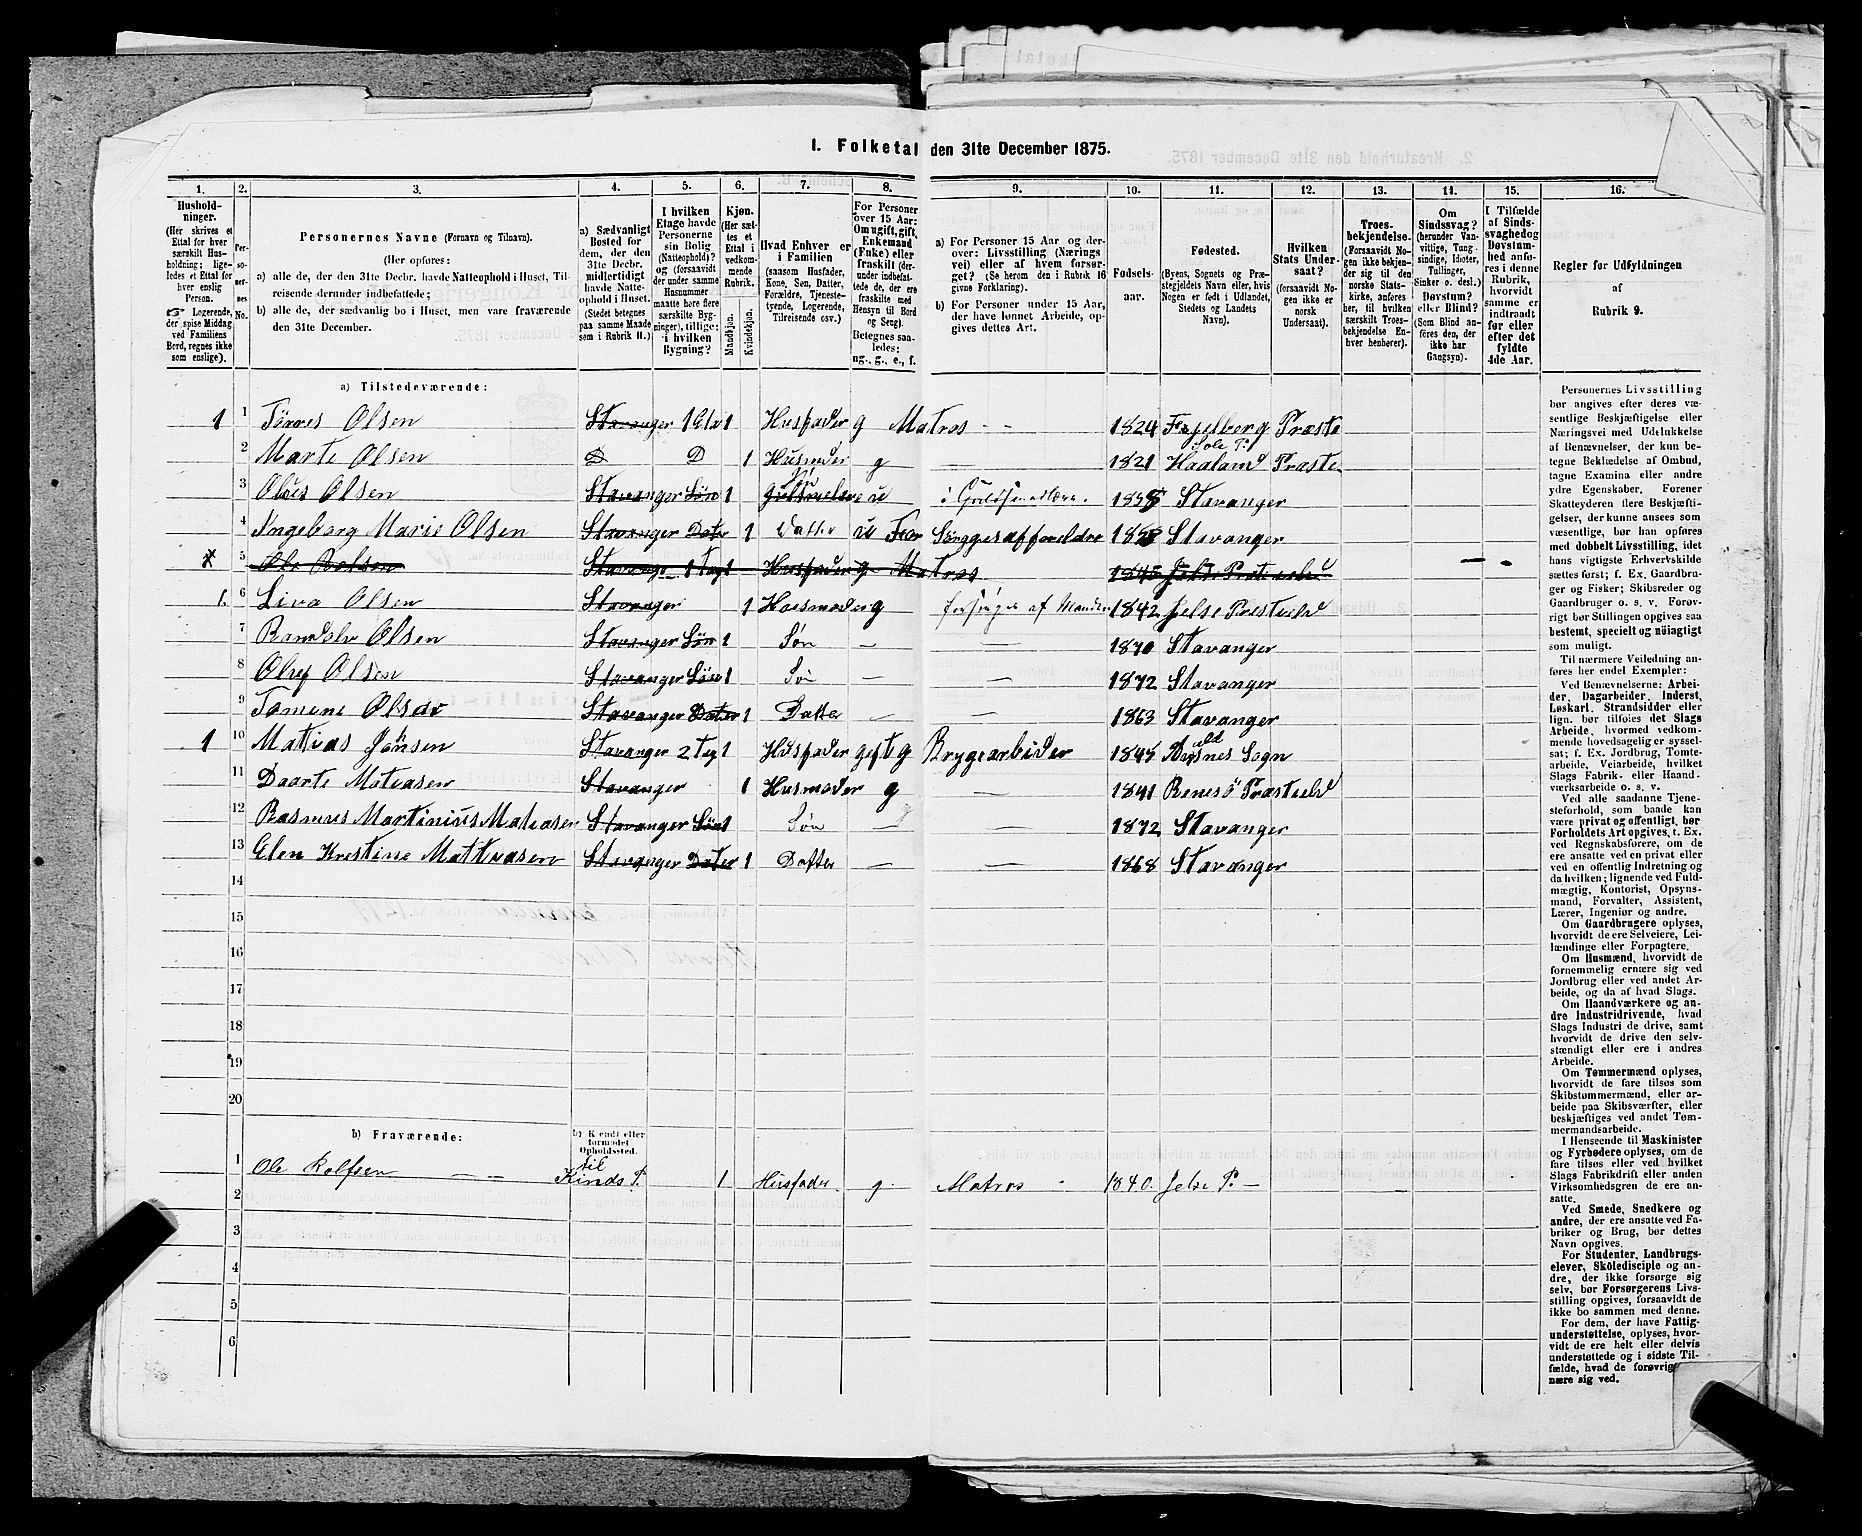 1. Folketal den 31te December 1875.
1. 2. 3. 4. 5. 6. 7. 8. 9. 10. 11. 12. 13. 14. 15. 16.
Hushold-
ninger.
(Her skrives et
Ettal for hver
særskilt Hus-
holdning; lige-
ledes et Ettal for
hver enslig
Person.
☞ Logerende,
der spise Middag
ved Familiens
Bord, regnes ikke
som enslige).
Per-
so-
ner-
nes
No.
Personernes Navne (Fornavn og Tilnavn).
(Her opføres:
a) alle de, der den 31te Decbr. havde Natteophold i Huset, Til-
reisende derunder indbefattede;
b) alle de, der sædvanlig bo i Huset, men vare fraværende
den 31te December.
a) Sædvanligt
Bosted for
dem, der den
31te Decbr.
midlertidigt
havde Natte-
ophold i Huset.
(Stedet betegnes
paa samme Maade
som i Rubrik 11.)
I hvilken
Etage havde
Personerne
sin Bolig
(Natteophold)?
og (forsaavidt
der under samme
Husnummer
maatte høre flere
særskilte Byg-
ninger), tillige:
i hvilken
Bygning?
Kjøn.
(Her sæt-
tes et
Ettal i
vedkom-
mende
Rubrik.
Mandkjøn.
Kvindekjøn.
Hvad Enhver er
i Familien
(saasom Husfader,
Kone, Søn, Datter,
Forældre, Tjeneste-
tyende, Logerende,
Tilreisende osv.)
For Personer
over 15 Aar:
Om ugift, gift,
Enkemand
(Enke) eller
fraskilt (der-
under indbefat-
tede de, der ere
fraskilte med
Hensyn til Bord
og Seng).
Betegnes saa-
ledes:
ug., g., e., f.
a) For Personer 15 Aar og der-
over: Livsstilling (Nærings-
vei) eller af hvem forsør-
get? (Se herom den i Rubrik 16
givne Forklaring).
b) For Personer under 15 Aar,
der have lønnet Arbeide, op-
gives dettes Art.
Fødsels-
aar.
Fødested.
(Byens, Sognets og Præ-
stegjeldets Navn, eller, hvis
Nogen er født i Udlandet,
Stedets og Landets
Navn).
Hvilken
Stats Under-
saat?
(forsaavidt No-
gen ikke er
norsk
Undersaat).
Troes-
bekjendelse.
(Forsaavidt No-
gen ikke bekjen-
der sig til den
norske Stats-
kirke, anføres
her, til hvilken
særskilt Troes-
bekjendelse En-
hver henhører).
Om
Sindssvag?
(herunder Van-
vittige, Tung-
sindige, Idioter,
Tullinger,
Sinker o. desl.)
Døvstum?
eller Blind?
(Som Blind an-
føres den, der
ikke har
Gangsyn).
I Tilfælde
af Sinds-
svaghed og
Døvstum-
hed anfø-
res i denne
Rubrik,
hvorvidt
samme er
indtraadt
før eller
efter det
fyldte
4de Aar.
Regler for Udfyldningen
af
Rubrik 9.
a) Tilstedeværende:
1 1 Tönnes Olsen Stavanger 1 Eta 1 Husfader g Matros 1824 Fjelberg Præste
2 Marte Olsen D D 1 Husmoder g — 1821 Haaland Præste
Sole P.
3 Olues Olsen Stavanger Sön 1 Sön u i Guldsmedlære. 1858 Stavanger
4 Ingeborg Marie Olsen Stavanger Dater 1 Datter u Forsörges af foreldre 1858 Stavanger
5 Ole Stavanger 1 Husfader g Matros 1840 Jelse
6 Liva Olsen Stavanger 1 Husmoder g forsörges af Manden 1842 Jelse Prestield
7 Olsen Stavanger Sön 1 Søn — 1870 Stavanger
8 Oluf Olsen Stavanger Sön 1 Søn — 1872 Stavanger
9 Tomine Olsen Stavanger Dater 1 Datter — 1863 Stavanger
1 10 Matias Jönsen Stavanger 2 Etag 1 Husfader gift g Brygearbider 1845 Sogn
11 Daarte Matiasen Stavanger 1 Husmoder g — 1841 Renesö Præstield
12 Rasmus Martinius Matiasen Stavanger Sön 1 Søn — 1872 Stavanger
13 Elen Kristine Mattiasen Stavanger Dater 1 Datter — 1868 Stavanger
14
15
16
17
18
19
20
b) Fraværende:
b) Kjendt eller
formodet
Opholdssted.
1 Ole Rolfsen til Kinds P. 1 Husfader g. Matros 1840. Jelse P. —
2
3
4
5
6
Personernes Livsstilling
bør angives efter deres væ-
sentlige Beskjæftigelse eller
Næringsvei med Udelukkelse
af Benævnelser, der kun be-
tegne Beklædelse af Ombud,
tagne Examina eller andre
ydre Egenskaber. Forener
Skatteyderen flere Beskjæfti-
gelser, der kunne ansees som
væsentlige, bør han opføres
med dobbelt Livsstilling, idet
hans vigtigste Erhvervskilde
sættes først; f. Ex. Gaardbru-
ger og Fisker; Skibsreder og
Gaardbruger o. s. v. Forøv-
rigt bør Stillingen opgives saa
bestemt, specielt og nöiagtigt
som muligt.
Til nærmere Veiledning an-
føres her endel Exempler:
Ved Benævnelserne: Arbei-
der, Dagarbeider, Inderst,
Løskarl, Strandsidder eller
lign. bør tilføies det Slags
Arbeide, hvormed vedkom-
mende hovedsagelig er syssel-
sat; f. Ex. Jordbrug, Tomte-
arbeide, Veiarbeide, hvilket
Slags Fabrik- eller Haand-
værksarbeide o. s. v.
Ved alle saadanne Tjene-
steforhold, som baade kan
være privat og offentligt, bør
Forholdets Art opgives, t. Ex.
ved Regnskabsførere, om de
ere ansatte ved en privat eller
ved en offentlig Indretning og
da hvilken; lignende ved Fuld-
mægtig, Kontorist, Opsyns-
mand, Forvalter, Assistent,
Lærer, Ingeniør og andre.
Om Gaardbrugere oplyses,
hvorvidt de ere Selveiere, Lei-
lændinge eller Forpagtere.
Om Husmænd, hvorvidt de
fornemmelig ernære sig ved
Jordbrug eller ved andet Ar-
beide, og da af hvad Slags.
Om Haandværkere og an-
dre Industridrivende, hvad
Slags Industri de drive, samt
hvorvidt de drive den selv-
stændigt eller ere i andres
Arbeide.
Om Tømmermænd oplyses,
hvorvidt de fare tilsøs som
Skibstømmermænd, eller ar-
beide paa Skibsværfter, eller
beskjæftiges ved andet Tøm-
mermandsarbeide.
I Henseende til Maskinister
og Fyrbødere oplyses, om de
fare tilsøs eller ved hvilket
Slags Fabrikdrift eller anden
Virksomhedsgren de ere an-
satte.
Ved Smede, Snedkere og
andre, der ere ansatte ved Fa-
briker og Brug, bør dettes
Navn opgives.
For Studenter, Landbrugs-
elever, Skoledisciple og an-
dre, der ikke forsørge sig
selv, bør Forsørgerens Livs-
stilling opgives, forsaavidt de
ikke bo sammen med denne.
For dem, der have Fattig-
understøttelse, oplyses, hvor-
vidt de ere helt eller delvis
understøttede og i sidste Til-
fælde, hvad de forøvrigt
nære sig ved.